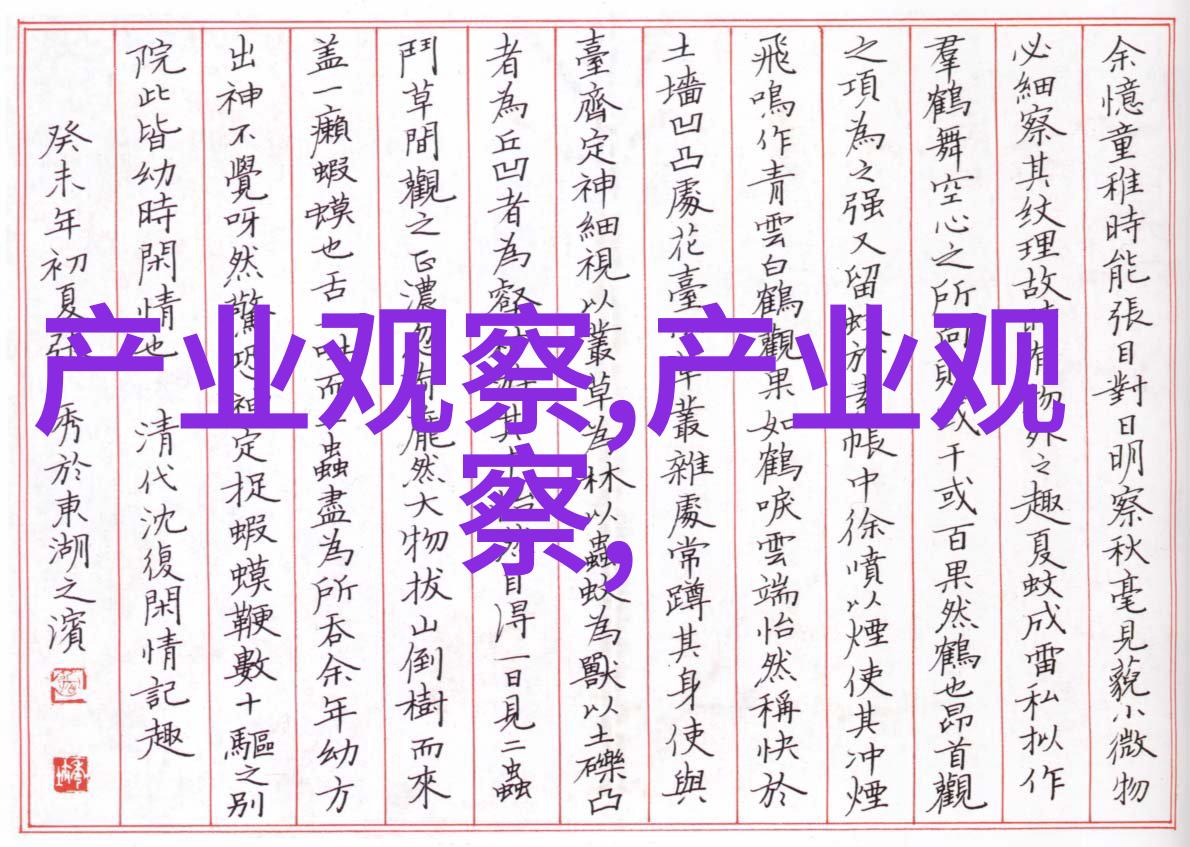 产业观察,产业观
察,
余憶童稚時能張目對日明察秋毫見藐小微物
必細察其纹理故時有物外之趣夏蚊成雷私拟作
羣鶴舞空心之所向則或千或百果然鶴也昂首觀
之項為之强又留蚊於素帳中徐噴以煙使其冲煙
飛鳴作青雲白鶴觀果如鶴唳雲端怡然稱快於
土墻凹凸處花臺小草叢雜處常蹲其身使與
臺齊定神細視以叢草為林以蟲蚊為獸以土礫凸
者為丘凹者為壑其怡然自得一日見二蟲
鬥草間觀之正濃忽有龐然大物拔山倒樹而來
盖一癩蝦蟆也舌一吐而二蟲盡為所吞余年幼方
出神不覺呀然驚恐神定捉蝦蟆鞭數十驅之别
院此皆幼時閑情也 清代沈復閑情記趣
癸未年初夏張秀於東湖之濱